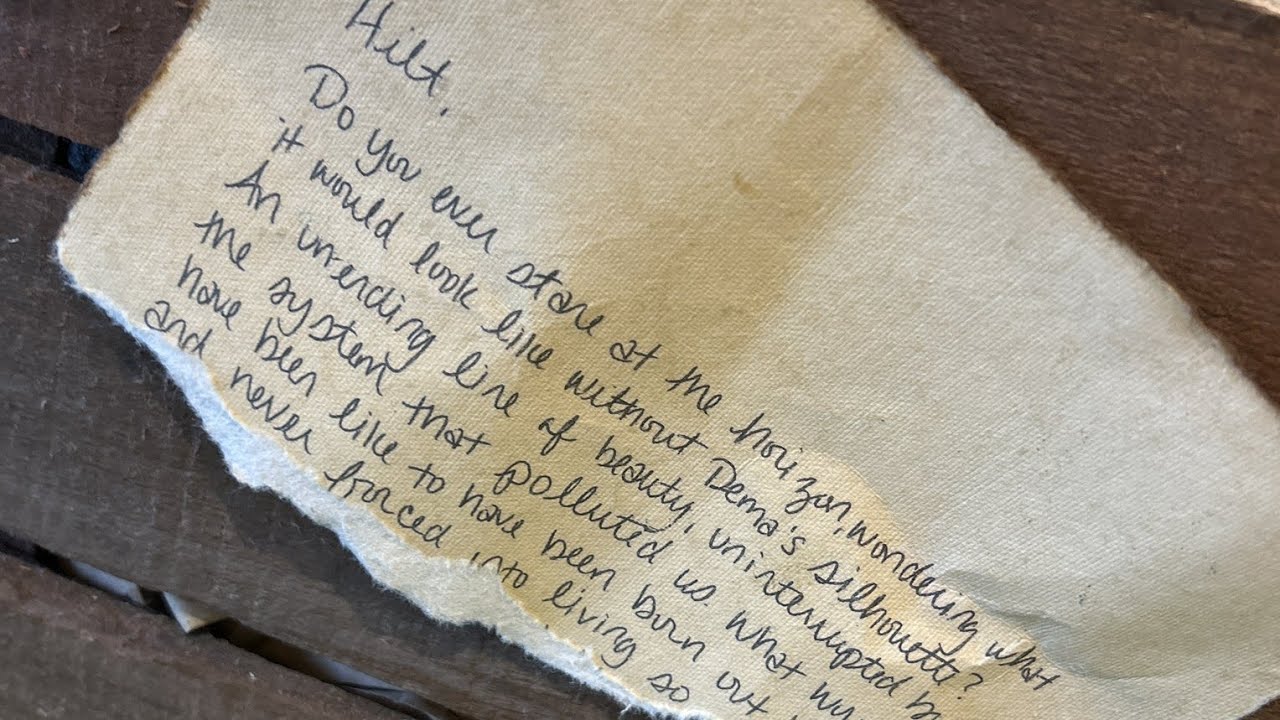 Hilt,
Do you ever stare at the horizon, wondering what
it would look like without Dema's silhouette?
An unending line of beauty, uninterrupted b
the system that polluted us. What wu
have been like to have been born out
and never forced into living so